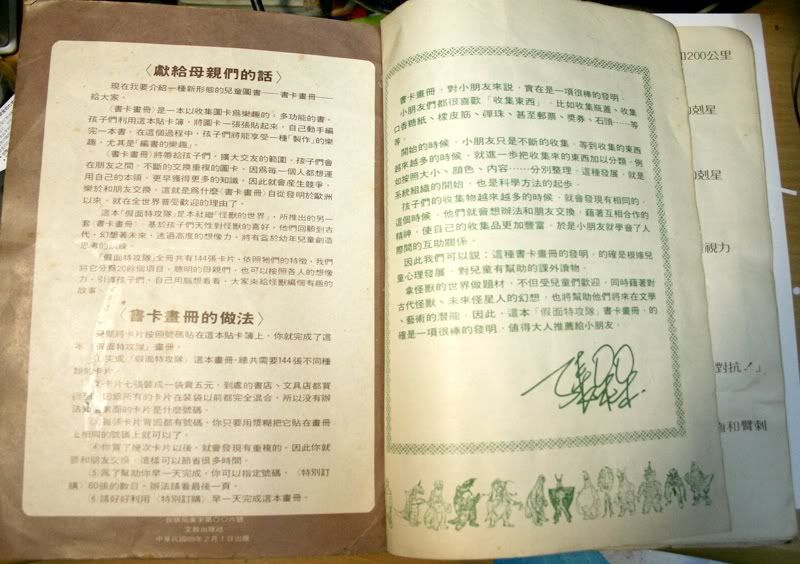 〈獻給母親們的話〉
現在我要介紹一種新形態的兒童圖書——書卡畫冊——
給大家。
〈書卡畫冊〉是一本以收集圖卡為樂趣的，多功能的書。
孩子們利用這本貼卡簿，將圖卡一張張貼起來，自己動手編
完一本書，在這個過程中，孩子們將能享受一種「製作」的樂
趣，尤其是「編書的樂趣」。
〈書卡畫冊〉將帶給孩子們，擴大交友的範圍，孩子們會
在朋友之間，不斷的交換重複的圖卡，因為每一個人都想運
用自己的本領，更早獲得更多的知識，因此就會產生競爭，
樂於和朋友交換，這就是為什麼〈書卡畫冊〉自從發明於歐洲
以來，就在全世界普受歡迎的理由了。
這本「假面特攻隊」是本社繼「怪獸的世界」，所推出的另一
套〈書卡畫冊〉，基於孩子們天性對怪獸的喜好，他們回顧到古
代，幻想著未來，透過高度的想像力，將有益於幼年兒童創造
思考的訓練。
「假面特攻隊」全冊共有144張卡片，依照牠們的特徵，我們
將它分為20餘個項目，聰明的母親們，也可以按照各人的想像
力，引導孩子們，自己用腦想看看，大家來給怪獸編個有趣的
故事。
〈書卡畫冊的做法〉
只要將卡片按照號碼貼在這本貼卡簿上，你就完成了這
本「假面特攻隊」畫冊。
①完成「假面特攻隊」這本畫冊，總共需要144張不同種
類的卡片。
卡片七張裝成一袋賣五元，到處的書店、文具店都買
得到，因為所有的卡片在裝袋以前都完全混合，所以沒有辦
法知道裏面的卡片是什麼號碼。
每張卡片背面都有號碼，你只要用漿糊把它貼在畫冊
上相同的號碼上就可以了。
④你買了幾次卡片以後，就會發現有重複的，因此你就
要和朋友交換，這樣可以節省很多時間。
⑤為了幫助你早一天完成，你可以指定號碼，〈特別訂
購〉60張的數目，辦法請看最後一頁。
⑥請好好利用〈特別訂購〉早一天完成這本畫冊。
文教出版社
2月1日出版
書卡畫冊，對小朋友來說，實在是一項很棒的發明。
小朋友們都很喜歡「收集東西」，比如收集瓶蓋、收集
口香糖紙、橡皮筋、彈珠、甚至郵票、獎券、石頭……等
等。
開始的時候，小朋友只是不斷的收集，等到收集的東西
越來越多的時候，就進一步把收集來的東西加以分類，例
如按照大小、顏色、內容……分別整理，這種發展，就是
系統組織的開始，也是科學方法的起步。
孩子們的收集物越來越多的時候，就會發現有相同的，
這個時候，他們就會想辦法和朋友交換，藉著互相合作的
精神，使自己的收集品更加豐富，於是小朋友就學會了人
際間的互助關係。
因此我們可以說：這種書卡畫冊的發明，的確是根據兒
童心理發展，對兒童有幫助的課外讀物。
拿怪獸的世界做題材，不但受兒童們歡迎，同時藉著對
古代怪獸、未來怪星人的幻想，也將幫助他們將來在文學
、藝術的潛能，因此，這本「假面特攻隊」書卡畫冊，的
確是一項很棒的發明，值得大人推薦給小朋友。
200公里
的剋星
的剋星
視力
對抗！」
和臂刺